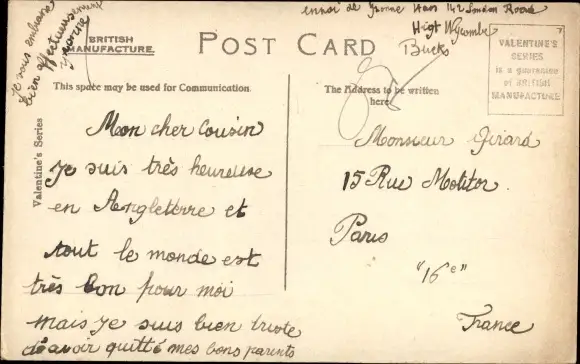 Je vous embrasse
bien affectueusement
Yvonne
BRITISH
MANUFACTURE.
POST CARD
envoi de Yvonne 142 London Road
Higt Wycombe
Bucks
VALENTINE'S
SERIES
is a guarantee
of BRITISH
MANUFACTURE
This space may be used for Communication.
The Address to be written
here.
Valentine's Series
Mon cher Cousin
Je suis très heureuse
en Angleterre et
tout le monde est
très bon pour moi
mais je suis bien triste
d'avoir quitté mes bons parents
Monsieur Girard
15 Rue Molitor.
Paris
"16e"
France